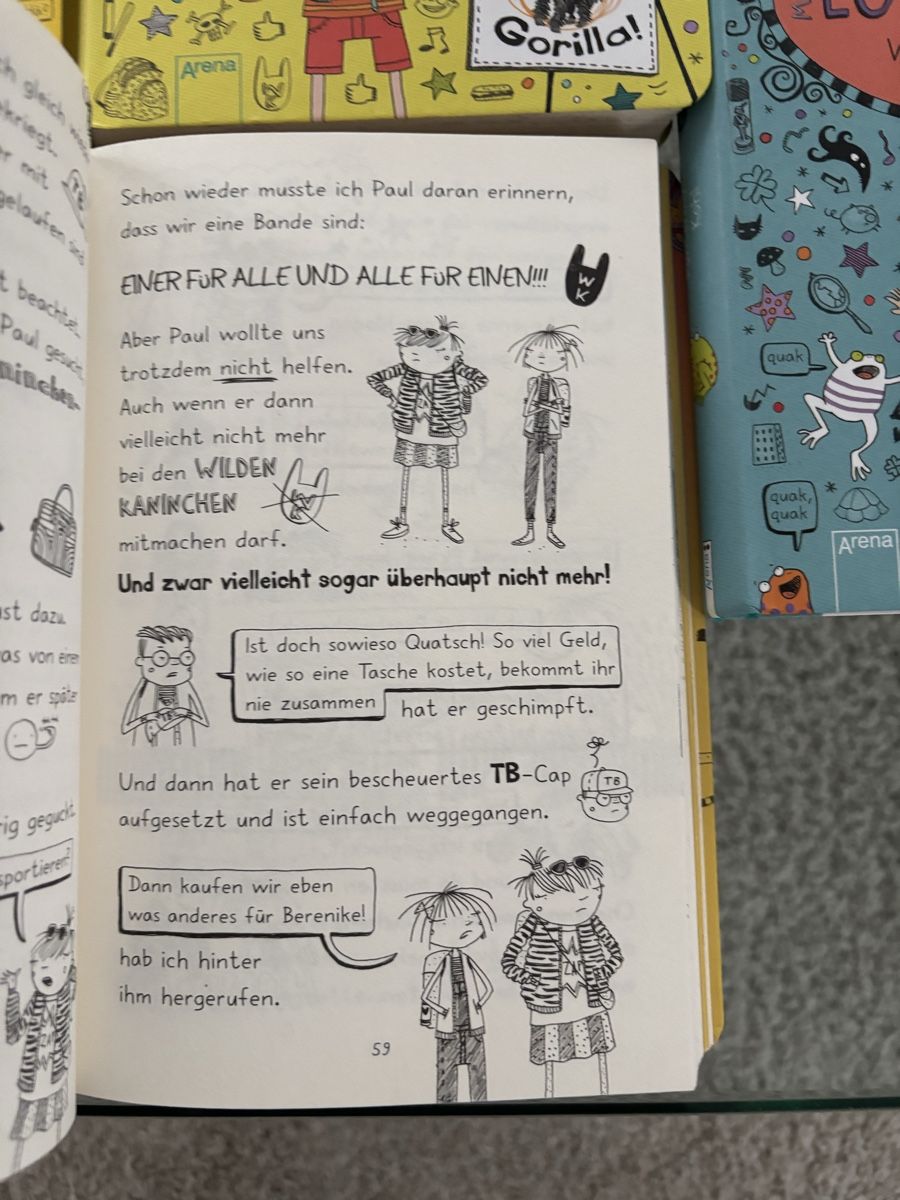 Arena
Gorilla!
Schon wieder musste ich Paul daran erinnern,
dass wir eine Bande sind:
EINER FÜR ALLE UND ALLE FÜR EINEN!!!
WK
Aber Paul wollte uns
trotzdem nicht helfen.
Auch wenn er dann
vielleicht nicht mehr
bei den WILDEN
KANINCHEN
mitmachen darf.
Und zwar vielleicht sogar überhaupt nicht mehr!
Ist doch sowieso Quatsch! So viel Geld,
wie so eine Tasche kostet, bekommt ihr
nie zusammen
hat er geschimpft.
Und dann hat er sein bescheuertes TB-Cap
TB
aufgesetzt und ist einfach weggegangen.
Dann kaufen wir eben
was anderes für Berenike!
hab ich hinter
ihm hergerufen.
59
gleich
mit
beachtet,
Paul gesucht
dazu.
von einem
er später
geguckt
quak
quak,
quak
Arena